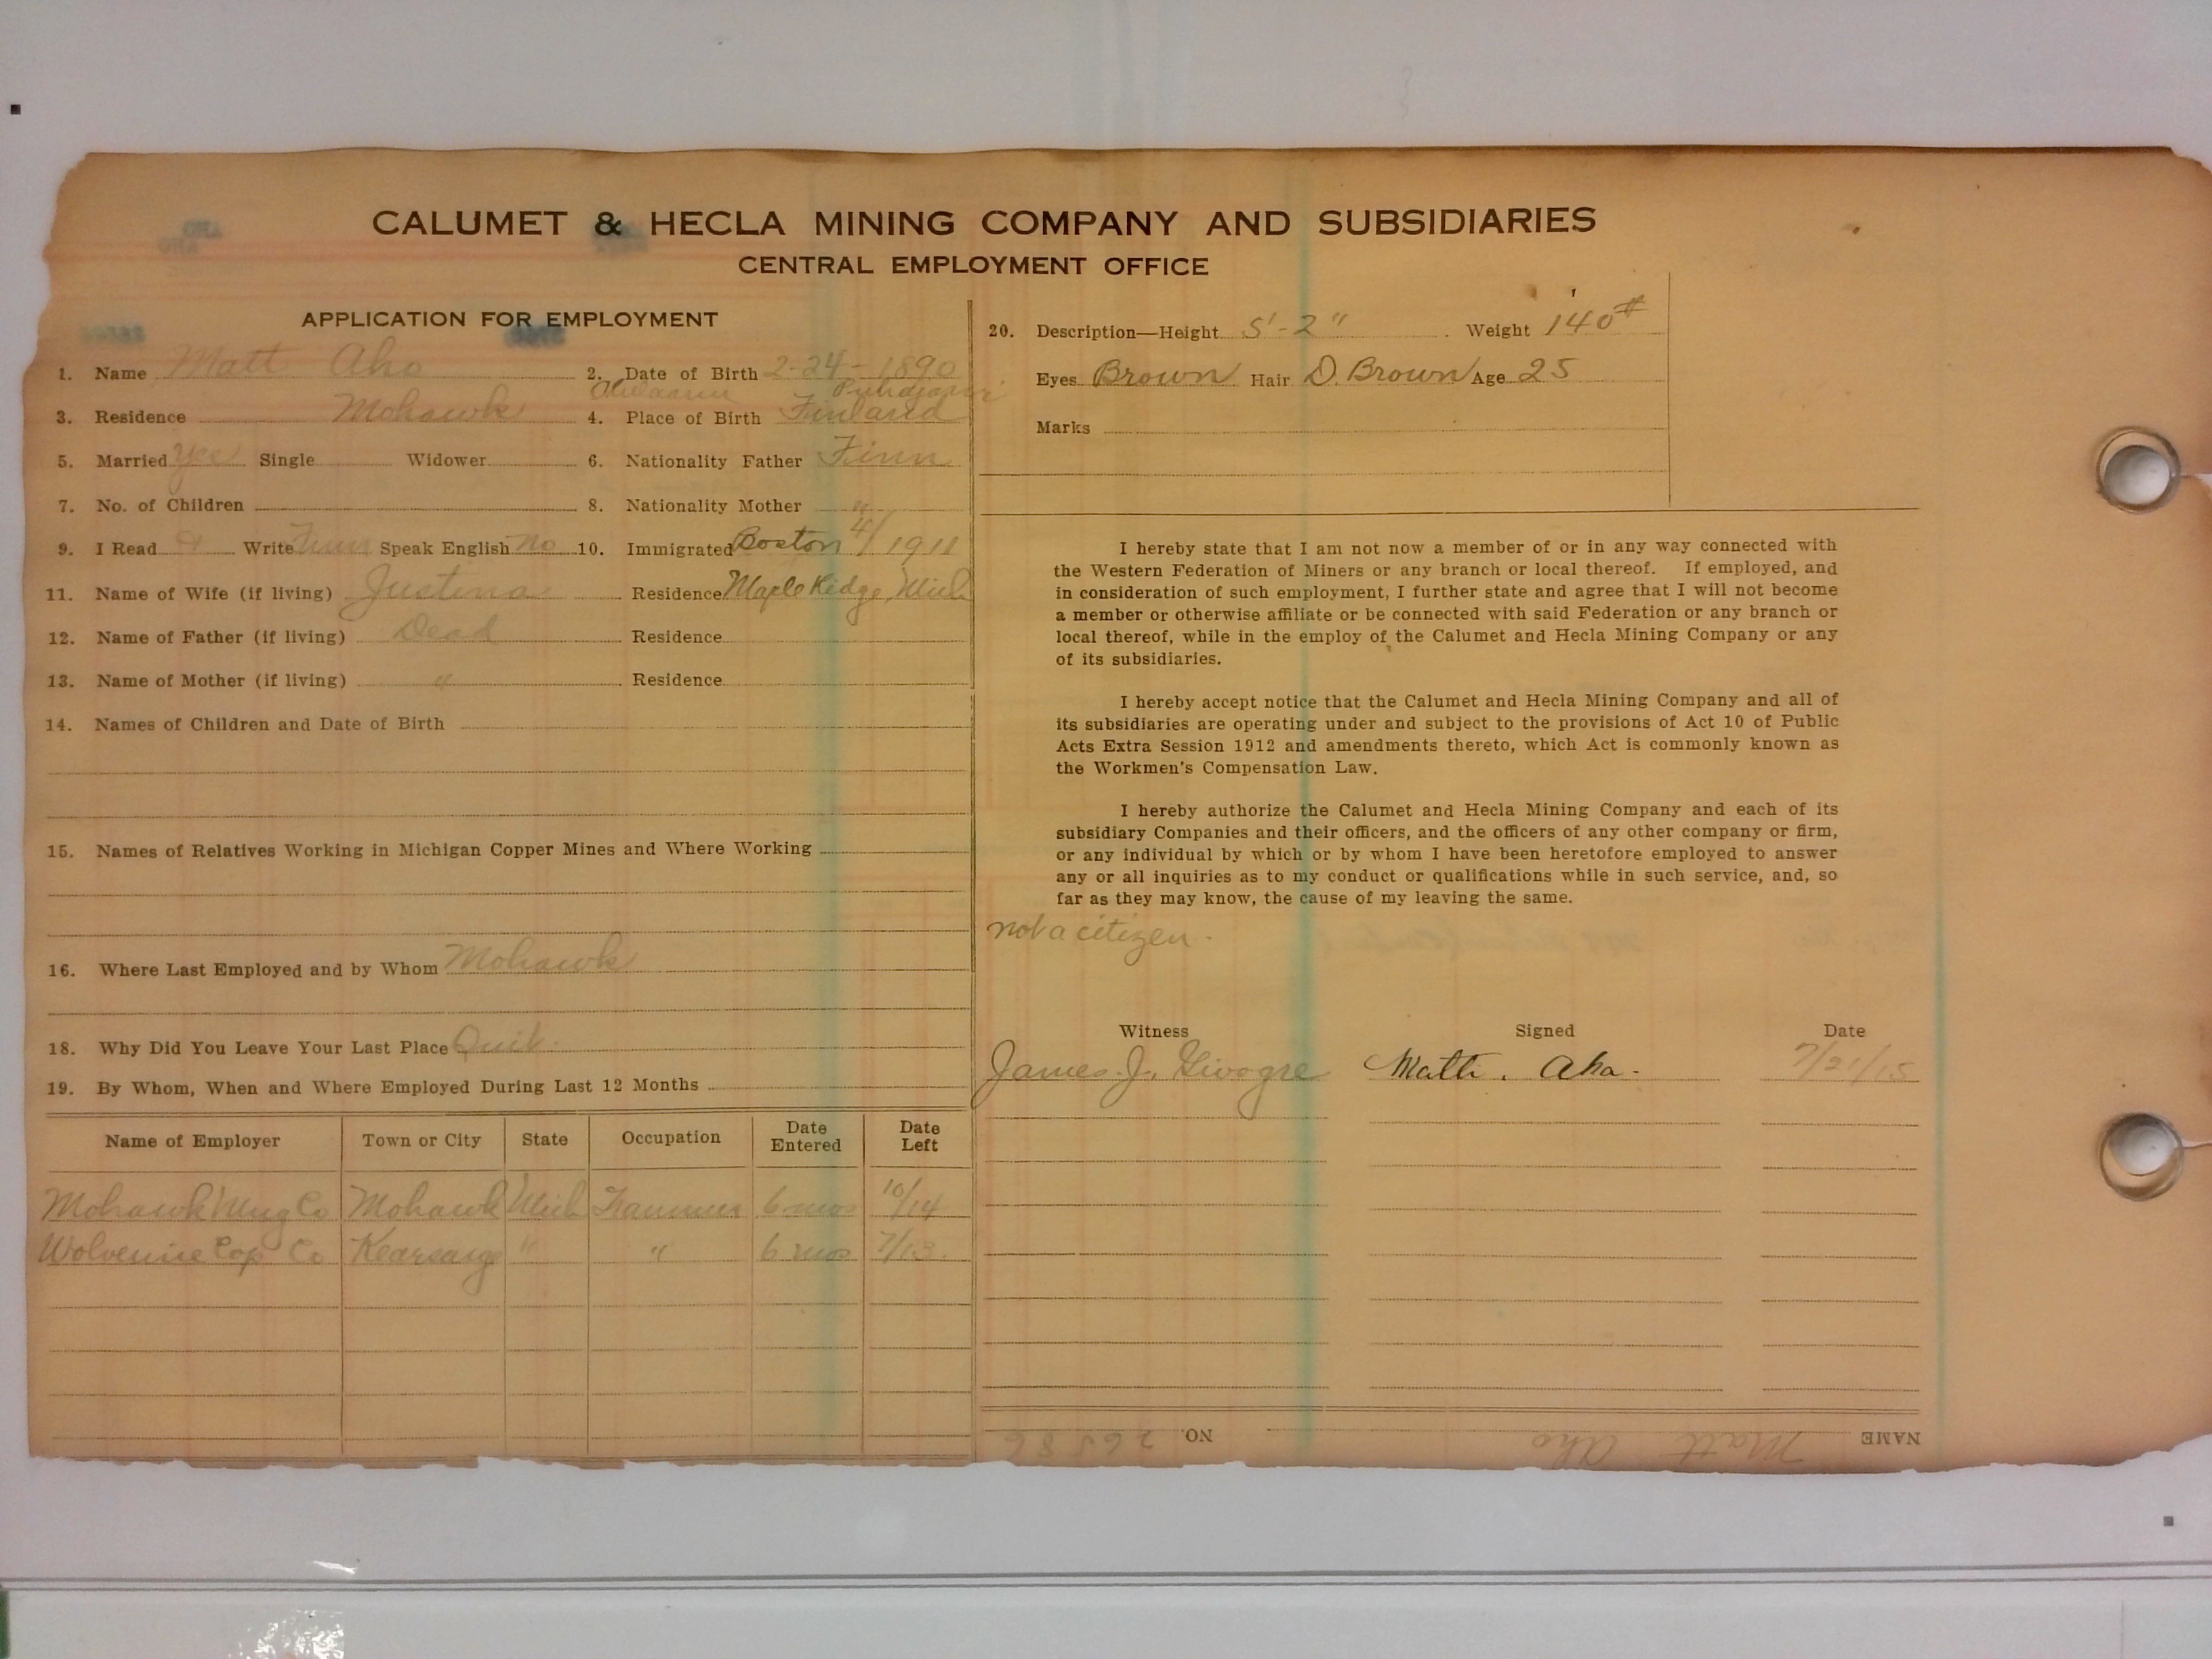 CALUMET & HECLA MINING COMPANY AND SUBSIDIARIES
CENTRAL EMPLOYMENT OFFICE
APPLICATION FOR EMPLOYMENT
1. Name Matt Aho 2. Date of Birth 2-24-1890
3. Residence Mohawk 4. Place of Birth Finland
5. Married Yes Single Widower 6. Nationality Father Finn
7. No. of Children 8. Nationality Mother "
9. I Read & Write Finn Speak English No 10. Immigrated Boston 4/1911
11. Name of Wife (if living) Justina Residence Maple Ridge, Mich
12. Name of Father (if living) Dead Residence
13. Name of Mother (if living) " Residence
14. Names of Children and Date of Birth
15. Names of Relatives Working in Michigan Copper Mines and Where Working
16. Where Last Employed and by Whom Mohawk
18. Why Did You Leave Your Last Place Quit.
19. By Whom, When and Where Employed During Last 12 Months
Name of Employer Town or City State Occupation Date Entered Date Left
Mohawk Mng Co Mohawk Mich Trammer 6 mos 10/14
Wolverine Cop Co Kearsarge " " 6 mos 7/13.
20. Description—Height 5'-2" Weight 140#
Eyes Brown Hair D. Brown Age 25
Marks
I hereby state that I am not now a member of or in any way connected with
the Western Federation of Miners or any branch or local thereof. If employed, and
in consideration of such employment, I further state and agree that I will not become
a member or otherwise affiliate or be connected with said Federation or any branch or
local thereof, while in the employ of the Calumet and Hecla Mining Company or any
of its subsidiaries.
I hereby accept notice that the Calumet and Hecla Mining Company and all of
its subsidiaries are operating under and subject to the provisions of Act 10 of Public
Acts Extra Session 1912 and amendments thereto, which Act is commonly known as
the Workmen's Compensation Law.
I hereby authorize the Calumet and Hecla Mining Company and each of its
subsidiary Companies and their officers, and the officers of any other company or firm,
or any individual by which or by whom I have been heretofore employed to answer
any or all inquiries as to my conduct or qualifications while in such service, and, so
far as they may know, the cause of my leaving the same.
not a citizen.
Witness Signed Date
James. J. Matti. Aho. 7/21/15
NAME Matt Aho NO. 26586